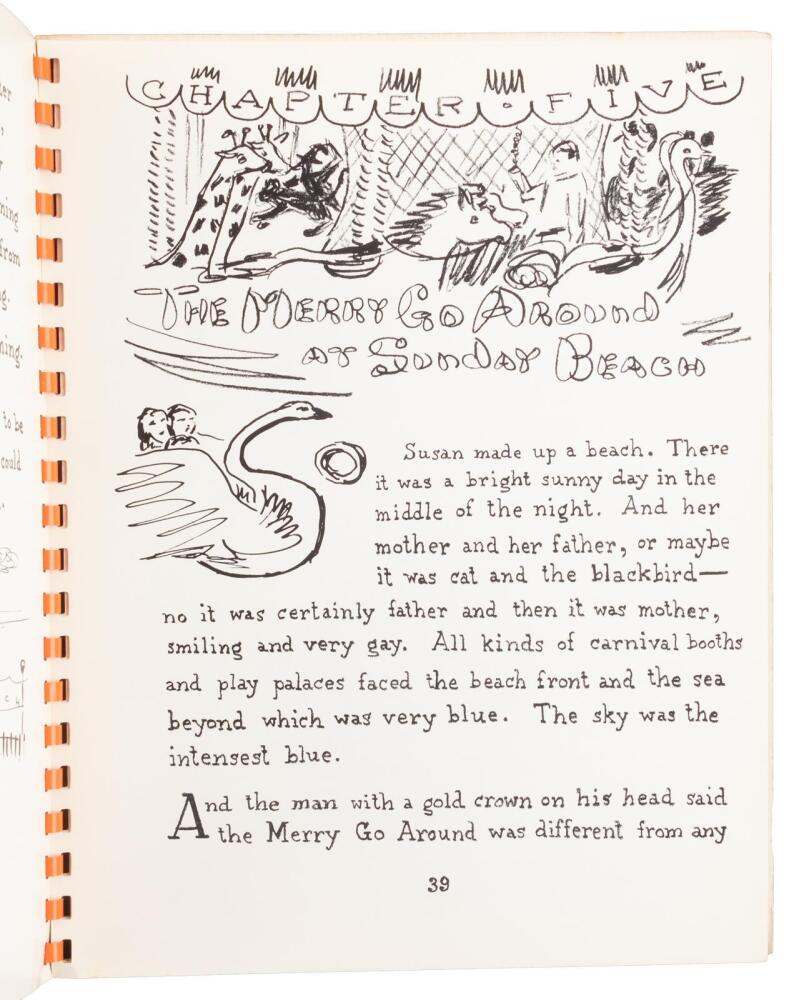 CHAPTER · FIVE
THE MERRY GO AROUND
AT SUNDAY BEACH
Susan made up a beach. There
it was a bright sunny day in the
middle of the night. And her
mother and her father, or maybe
it was cat and the blackbird—
no it was certainly father and then it was mother,
smiling and very gay. All kinds of carnival booths
and play palaces faced the beach front and the sea
beyond which was very blue. The sky was the
intensest blue.
And the man with a gold crown on his head said
the Merry Go Around was different from any
39
from
to be
could